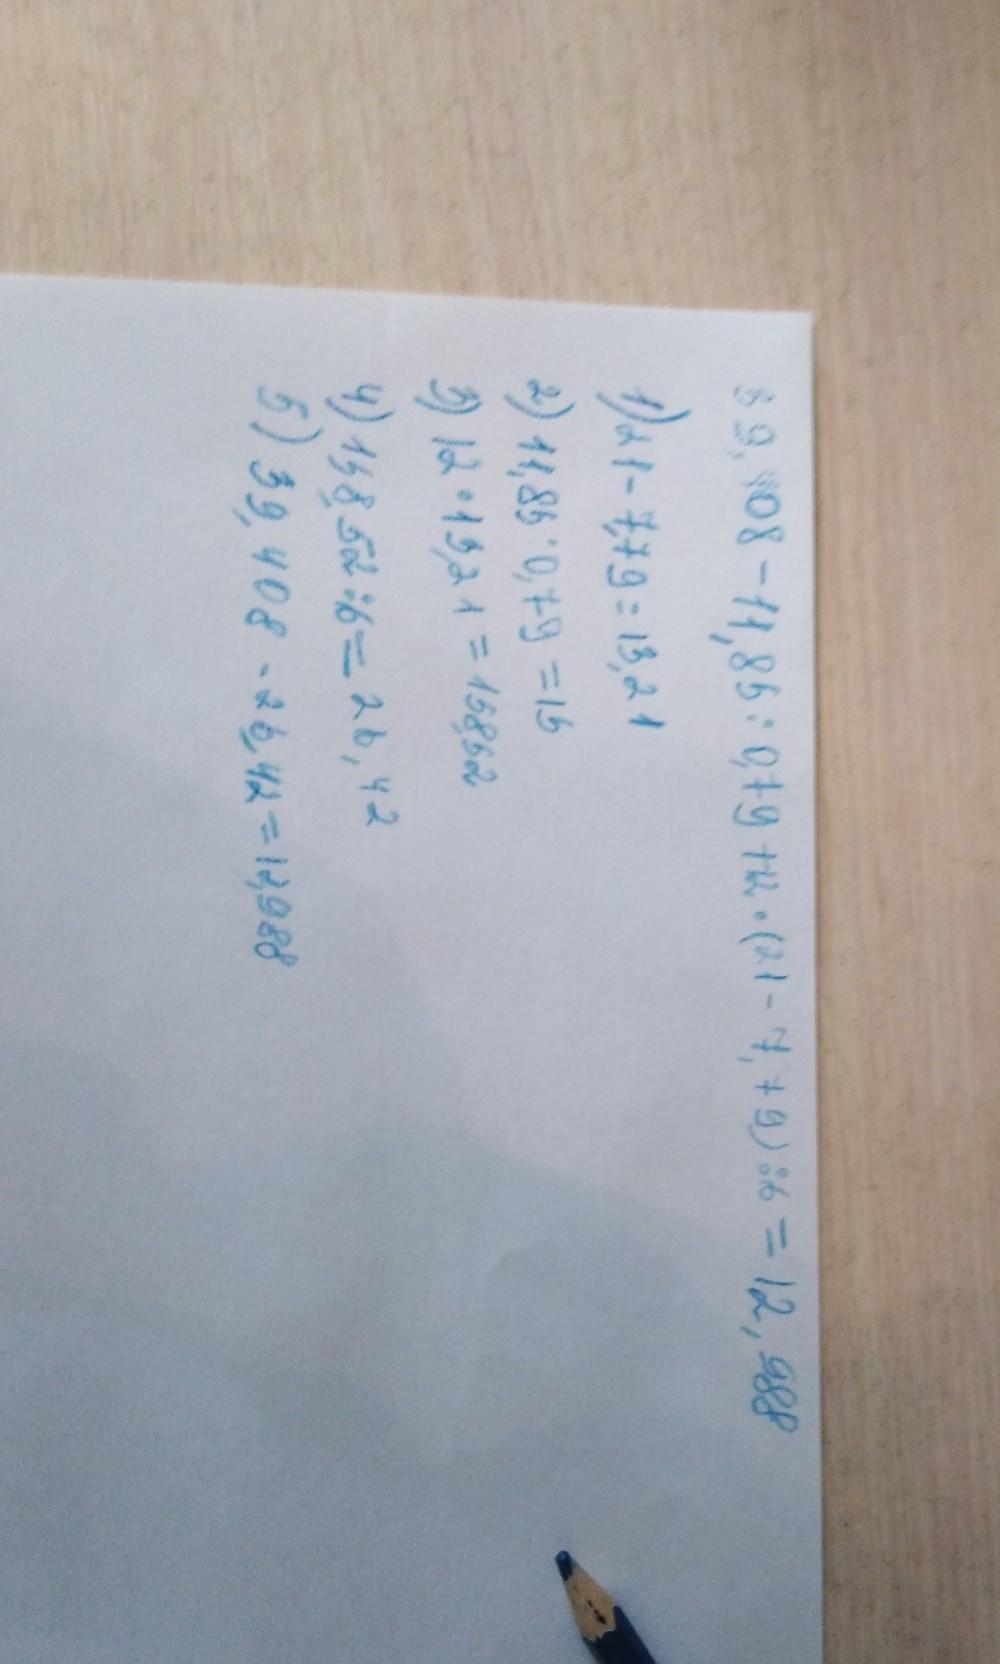 39,408-11,85:0,79+12·(21-7,79):6=12,988
1)21-7,79=13,21
2)11,85:0,79=15
3)12·13,21=158,52
4)158,52:6=26,42
5)39,408-26,42=12,988